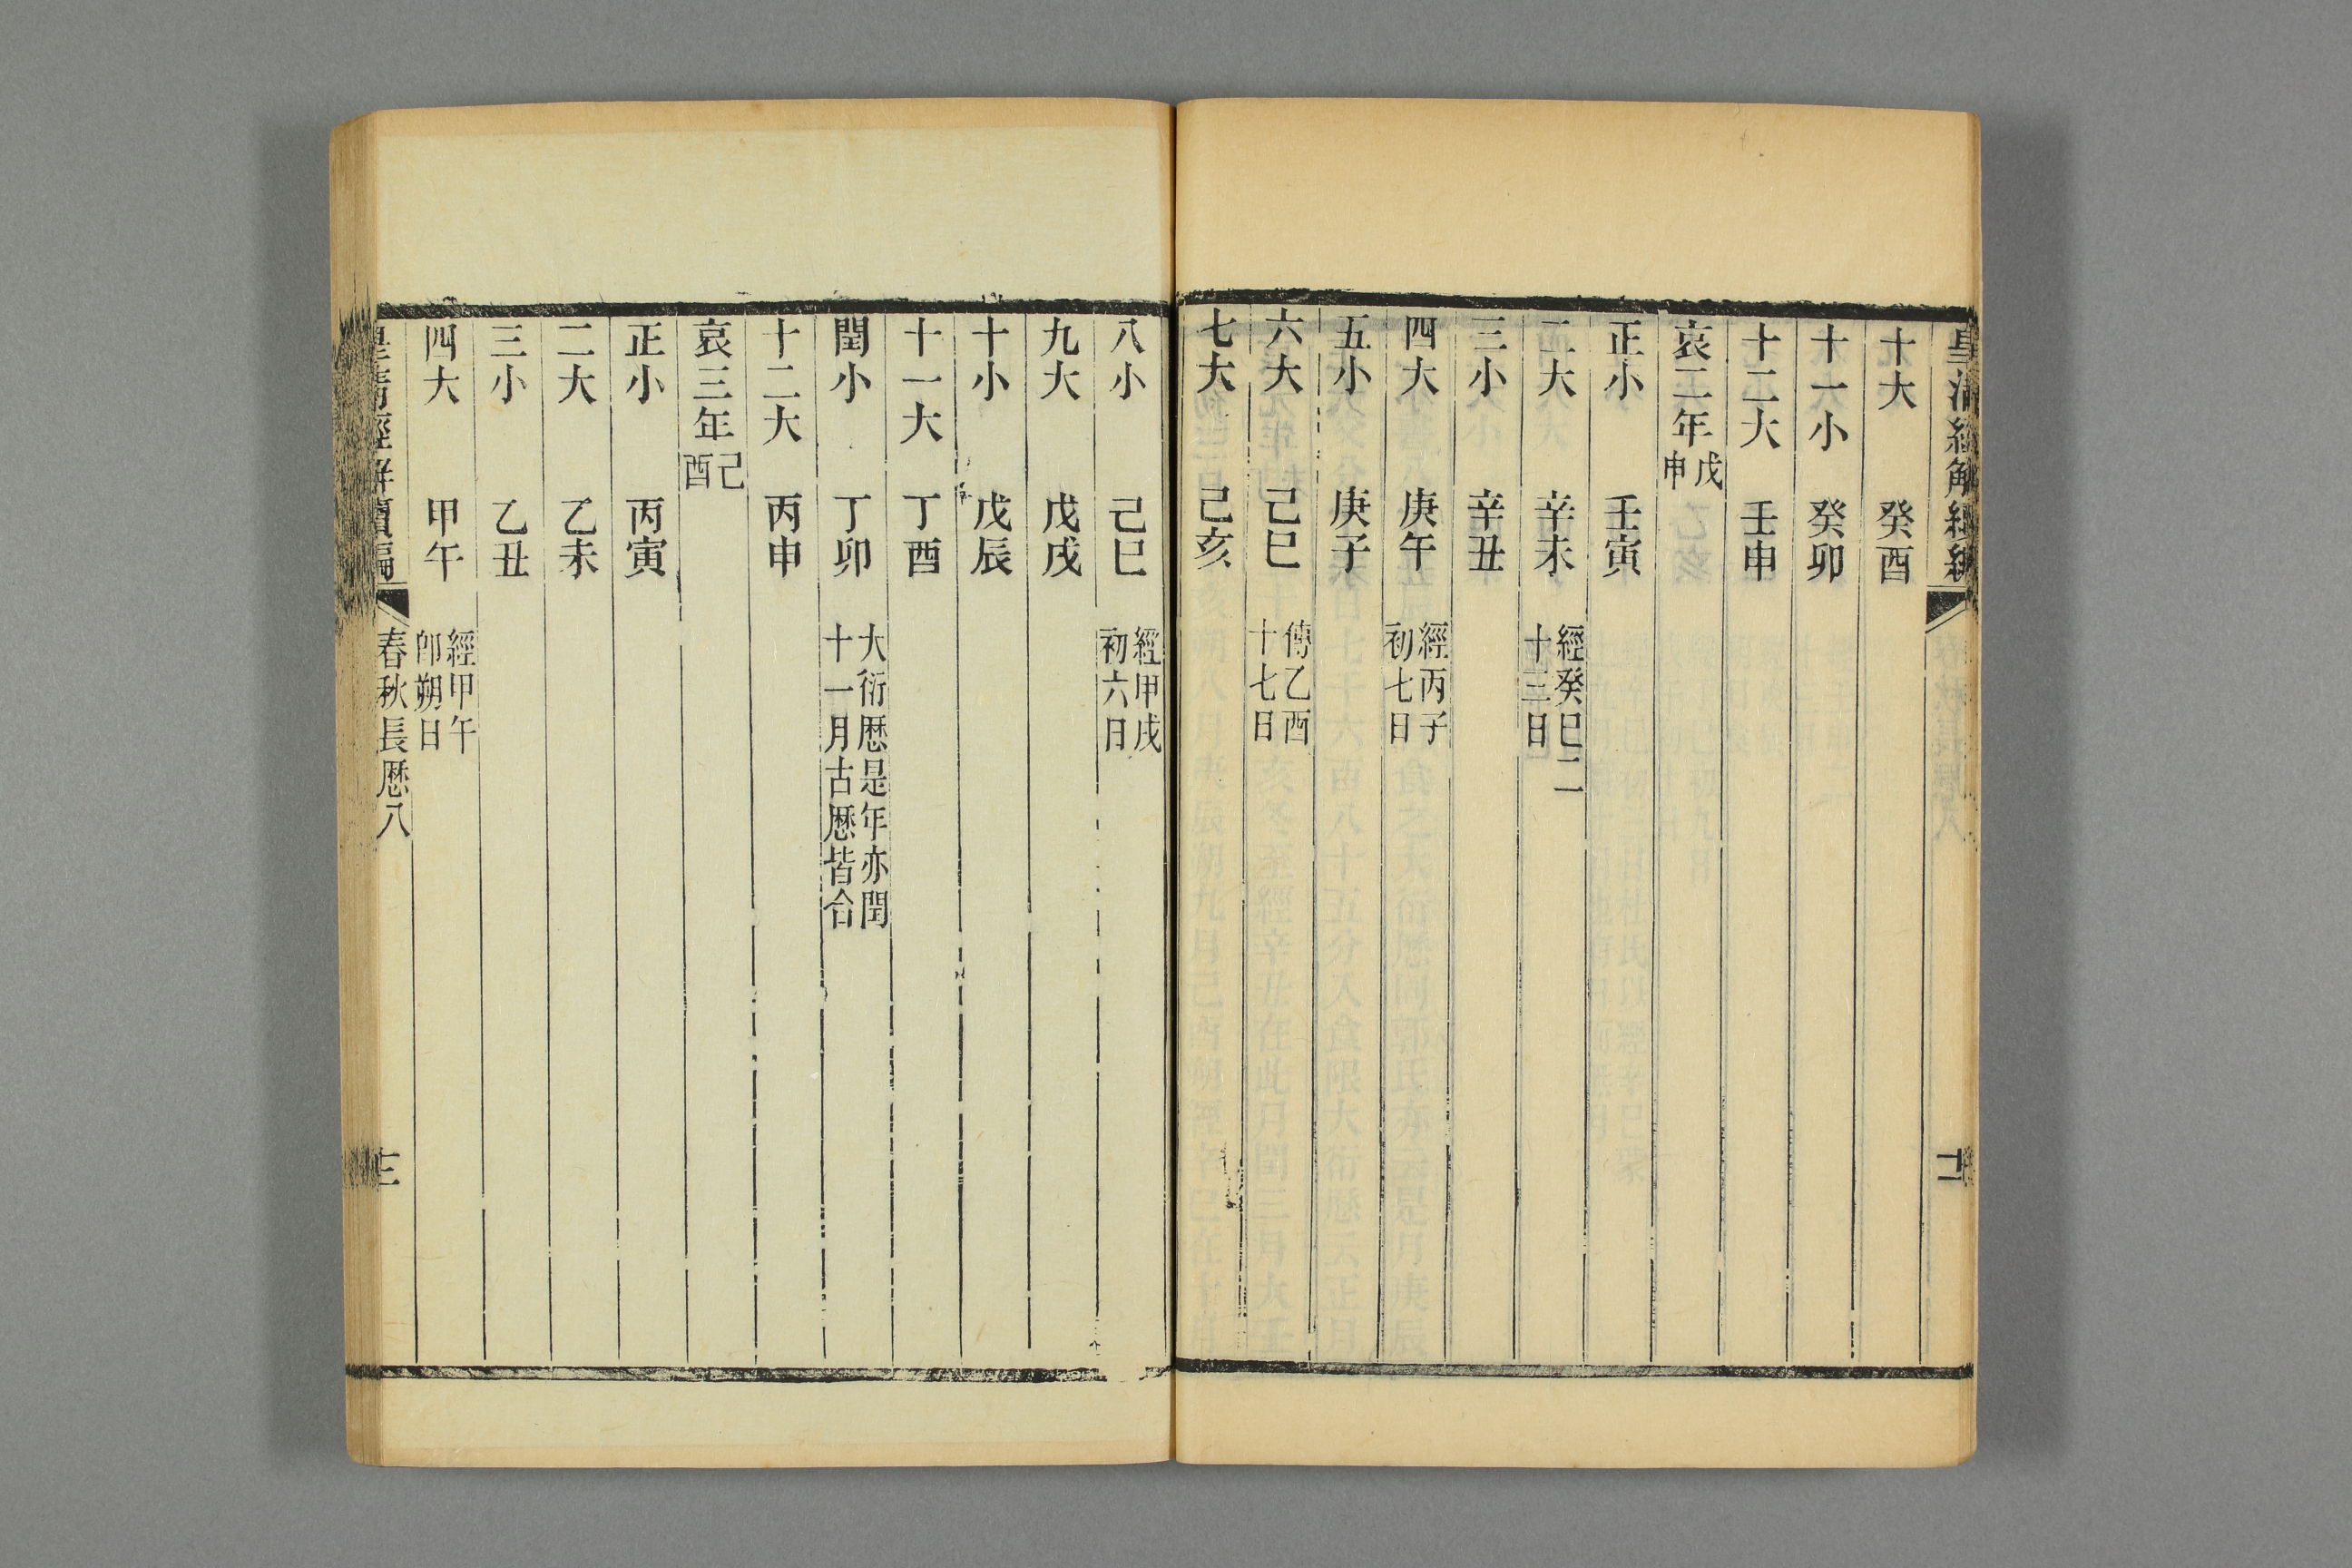 皇清經解續編
十大 癸酉
十一小 癸卯
十二大 壬申
哀二年戊申
正小 壬寅
二大 辛未 經癸巳二十三日
三小 辛丑
四大 庚午 經丙子初七日
五小 庚子
六大 己巳 傳乙酉十七日
七大 己亥
八小 己巳 經甲戌初六日
九大 戊戌
十小 戊辰
十一大 丁酉
閏小 丁卯 大衍厯是年亦閏十一月古厯皆合
十二大 丙申
哀三年己酉
正小 丙寅
二大 乙未
三小 乙丑
四大 甲午 經甲午卽朔日
皇清經解續編 春秋長厯八